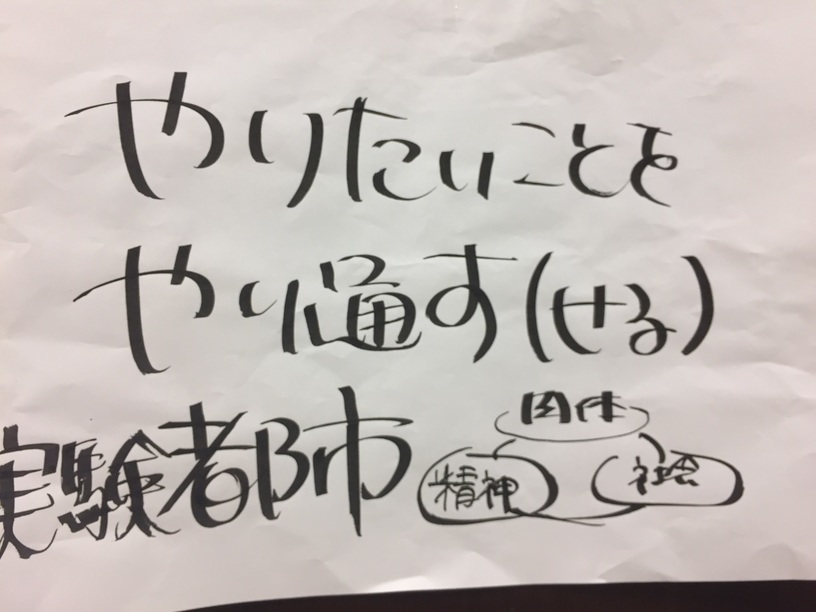 やりたいことを
やり通す(せる)
実験都市
肉体
精神 社会